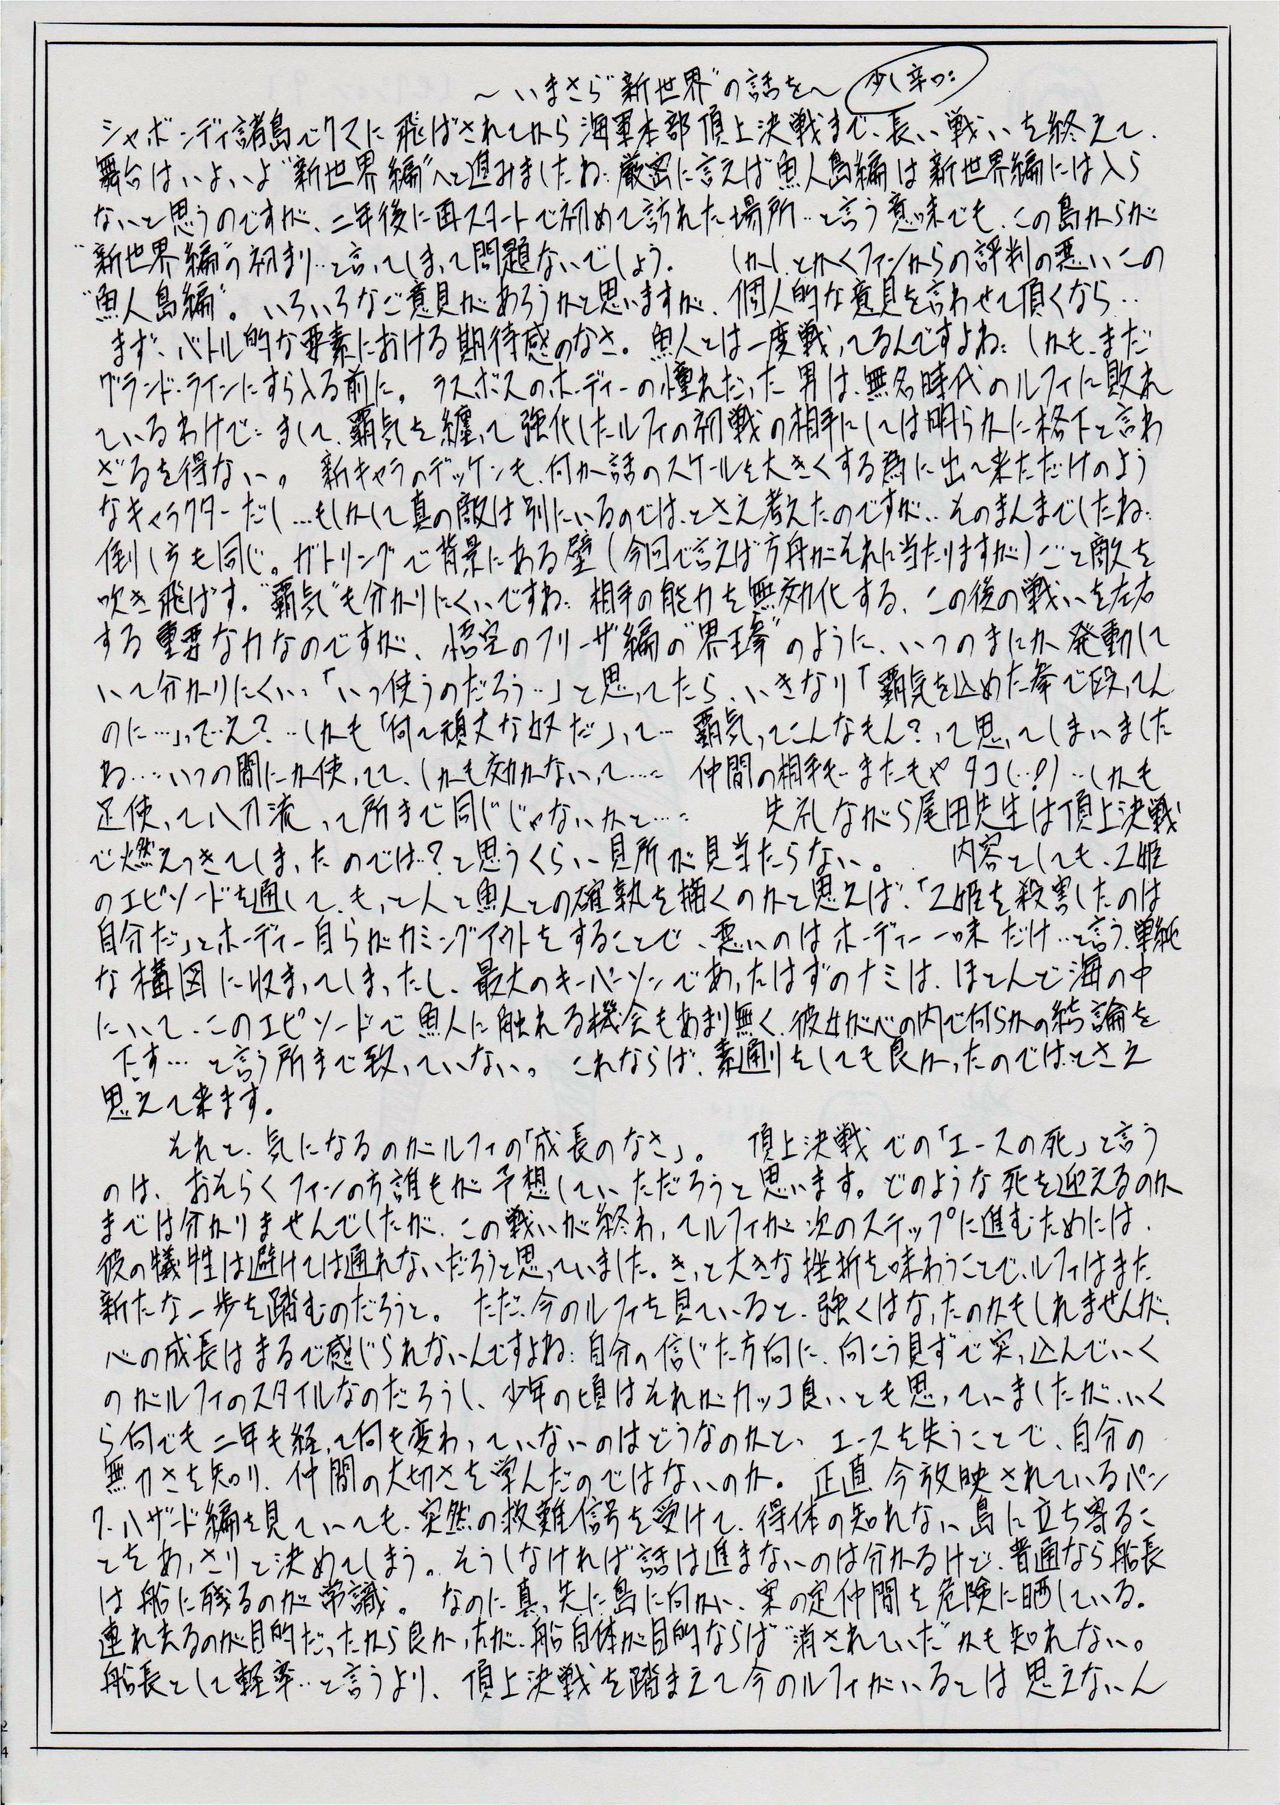 ～いまさら"新世界"の話を～ 少し辛口:
シャボンディ諸島でクマに飛ばされてから海軍本部頂上決戦まで、長い戦いを終えて、
舞台はいよいよ"新世界編"へと進みましたね: 厳密に言えば魚人島編は新世界編には入ら
ないと思うのですが、二年後に再スタートで初めて訪れた場所…と言う意味でも、この島からが
"新世界編"の初まり…と言ってしまって問題ないでしょう。 しかし、とかくファンからの評判の悪いこの
"魚人島編"。いろいろなご意見があろうかと思いますが、個人的な意見を言わせて頂くなら‥
まず、バトル的な要素における期待感のなさ。魚人とは一度戦ってるんですよね: しかも、まだ
グランド・ラインにすら入る前に。ラスボスのホーディーの憧れだった男は、無名時代のルフィに敗れ
ているわけで: まして、覇気を纏って強化したルフィの初戦の相手にしては明らかに格下と言わ
ざるを得ない。新キャラのデッケンも、何か話のスケールを大きくする為に出て来ただけのよう
なキャラクターだし…もしかして真の敵は別にいるのでは、とさえ考えたのですが‥そのまんまでしたね:
倒し方も同じ。ガトリングで背景にある壁(今回で言えば方舟がそれに当たりますが)ごと敵を
吹き飛ばす。"覇気"も分かりにくいですね: 相手の能力を無効化する、この後の戦いを左右
する重要な力なのですが、悟空のフリーザ編の"界王拳"のように、いつのまにか発動して
いて分かりにくい。「いつ使うのだろう‥」と思ってたら、いきなり「覇気を込めた拳で殴ってん
のに…」って‥え? ‥しかも「何て頑丈な奴だ」って… 覇気ってこんなもん?って思ってしまいました
ね…: いつの間にか使ってて、しかも効かないって…: 仲間の相手も…またもやタコ(…!)‥しかも
足使って八刀流って所まで同じじゃないかと…: 失礼ながら尾田先生は頂上決戦
で燃えつきてしまったのでは?と思うくらい見所が見当たらない。 内容としても、乙姫
のエピソードを通して、もっと人と魚人との確執を描くのかと思えば、「乙姫を殺害したのは
自分だ」とホーディー自らがカミングアウトをすることで、悪いのはホーディー一味だけ‥と言う、単純
な構図に収まってしまったし、最大のキーパーソンであったはずのナミは、ほとんど海の中
にいて、このエピソードで魚人に触れる機会もあまり無く、彼女が心の内で何らかの結論を
下す…と言う所まで致っていない。これならば、素通りをしても良かったのでは、とさえ
思えて来ます。
それと、気になるのがルフィの「成長のなさ」。 頂上決戦での「エースの死」と言う
のは、おそらくファンの方誰もが予想していただろうと思います。どのような死を迎えるのか
までは分かりませんでしたが、この戦いが終わってルフィが次のステップに進むためには、
彼の犠牲は避けては通れないだろうと思っていました。きっと大きな挫折を味わうことで、ルフィはまた
新たな一歩を踏むのだろうと。 ただ、今のルフィを見ていると、強くはなったのかもしれませんが、
心の成長はまるで感じられないんですよね: 自分の信じた方向に、向こう見ずで突っ込んでいく
のがルフィのスタイルなのだろうし、少年の頃はそれがカッコ良いとも思っていましたが、いく
ら何でも二年も経って何も変わっていないのはどうなのかと、エースを失うことで、自分の
無力さを知り、仲間の大切さを学んだのではないのか。正直、今放映されているパン
ク・ハザード編を見ていても、突然の救難信号を受けて、得体の知れない島に立ち寄るこ
とをあっさりと決めてしまう。そうしなければ話は進まないのは分かるけど、普通なら船長
は船に残るのが常識。なのに真っ先に島に向かい、案の定仲間を危険に晒している。
連れ去るのが目的だったから良かったが、船自体が目的ならば"消されていた"かも知れない。
船長として軽率‥と言うより、頂上決戦を踏まえて今のルフィがいるとは思えないん